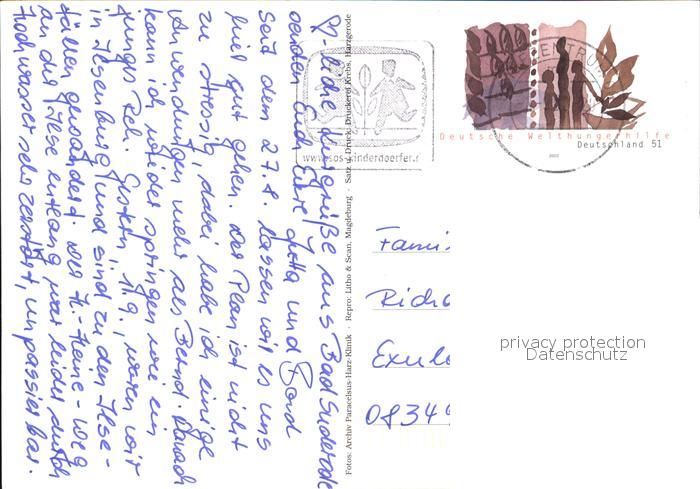 ♡-liche Urlaubsgrüße aus Bad Suderode
senden Euch Eure Jutta und Bernd
Seit dem 27.8. lassen wir es uns
hier gut gehen. Der Plan ist nicht
zu stressig, dabei habe ich einige
Anwendungen mehr als Bernd. Danach
kann ich wieder springen wie ein
junges Reh. Gestern, 1.9., waren wir
in Ilsenburg und sind zu den Ilse-
fällen gewandert. Der H.-Heine-Weg
an der Ilse entlang war leider durch
Hochwasser sehr zerstört, unpassierbar.
www.sos-kinderdoerfer.
Fotos: Archiv Paracelsus-Harz-Klinik · Repro: Litho & Scan, Magdeburg · Satz u. Druck: Druckerei Krebs, Harzgerode
Deutsche Welthungerhilfe
Deutschland 51
2002
Fami
08349
privacy protection
Datenschutz